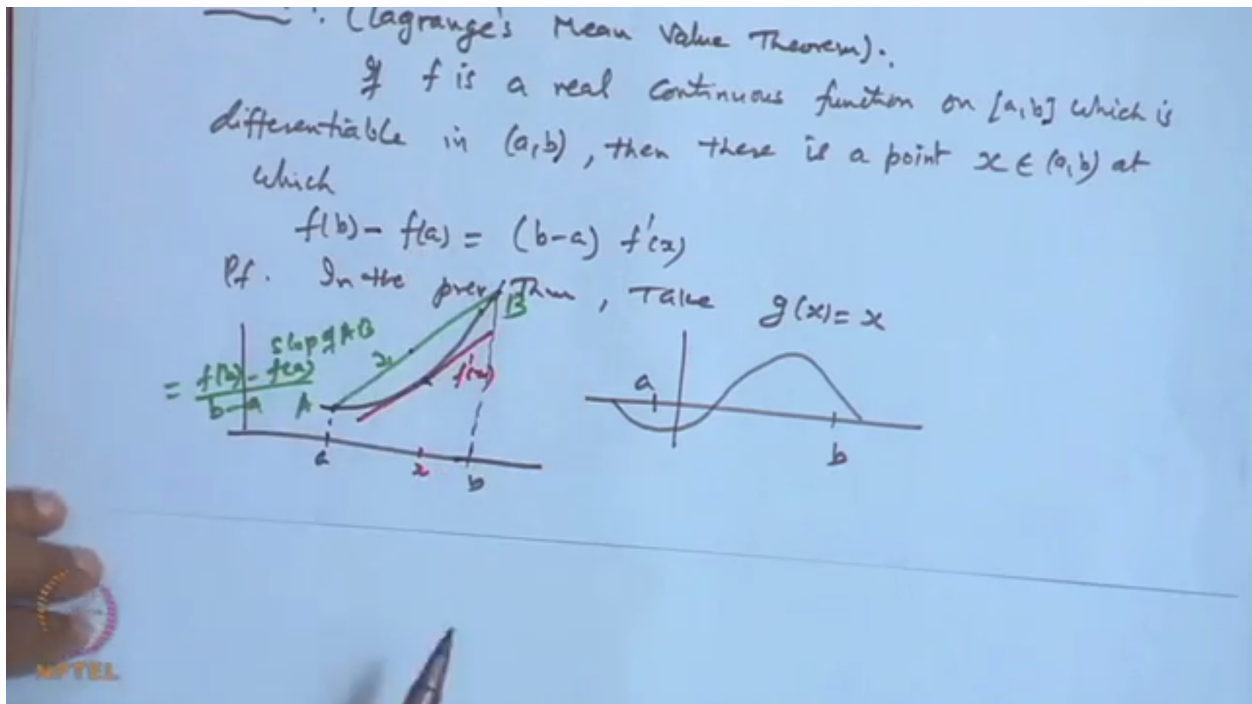 (Lagrange's Mean Value Theorem).
If f is a real continuous function on [a,b] which is
differentiable in (a,b), then there is a point x ∈ (a,b) at
which
f(b) - f(a) = (b-a) f'(x)
Pf. In the prev. Thm, Take g(x) = x
slope of AB
= f(b) - f(a) / b-a
A
B
f'(x)
a
x
b
a
b
NPTEL